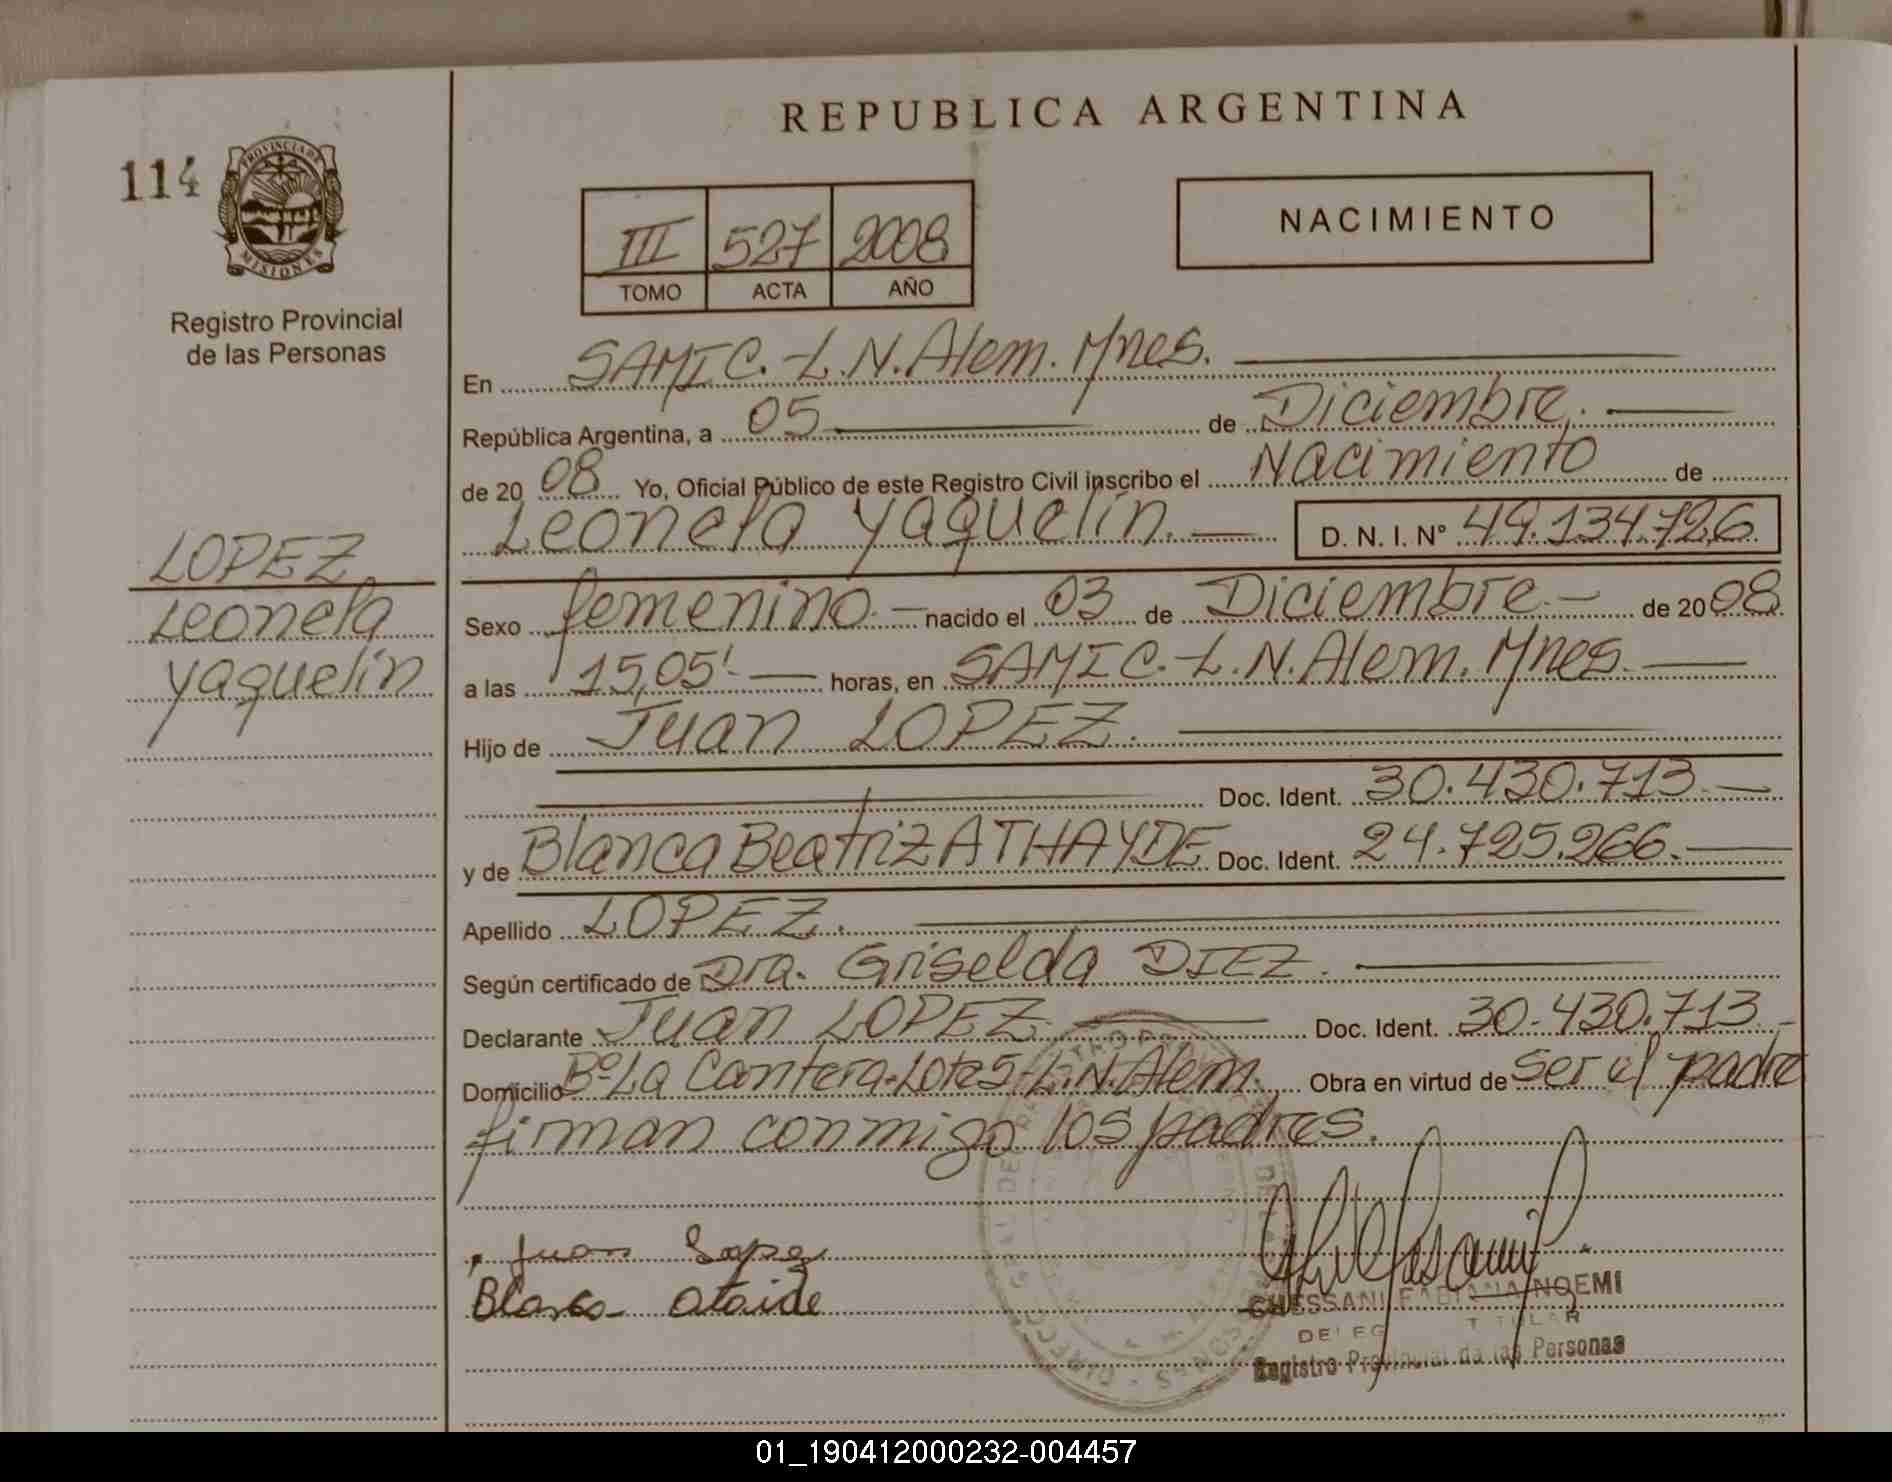 REPUBLICA ARGENTINA
114
PROVINCIA DE
MISIONES
Registro Provincial
de las Personas
III 527 2008
TOMO ACTA AÑO
NACIMIENTO
En SAMIC.-L.N.Alem.Mnes.
República Argentina, a 05 de Diciembre.
de 2008 Yo, Oficial Público de este Registro Civil inscribo el Nacimiento de
Leonela Yaquelin. D. N. I. Nº 49.134.726
LOPEZ
Leonela
Yaquelin
Sexo femenino.- nacido el 03 de Diciembre.- de 2008
a las 15,05' horas, en SAMIC.-L.N.Alem.Mnes.
Hijo de Juan LOPEZ.
Doc. Ident. 30.430.713.-
y de Blanca Beatriz ATHAYDE Doc. Ident. 24.725.266.
Apellido LOPEZ.
Según certificado de Dra. Griselda DIEZ.
Declarante Juan LOPEZ. Doc. Ident. 30.430.713.-
Domicilio Bº La Cantera-Lote 5-L.N.Alem. Obra en virtud de ser el padre
firman conmigo los padres.
Juan Lopez
Blanca ataide
GHESSANI FABIANA NOEMI
DELEG TITULAR
Registro Provincial de las Personas
01_190412000232-004457